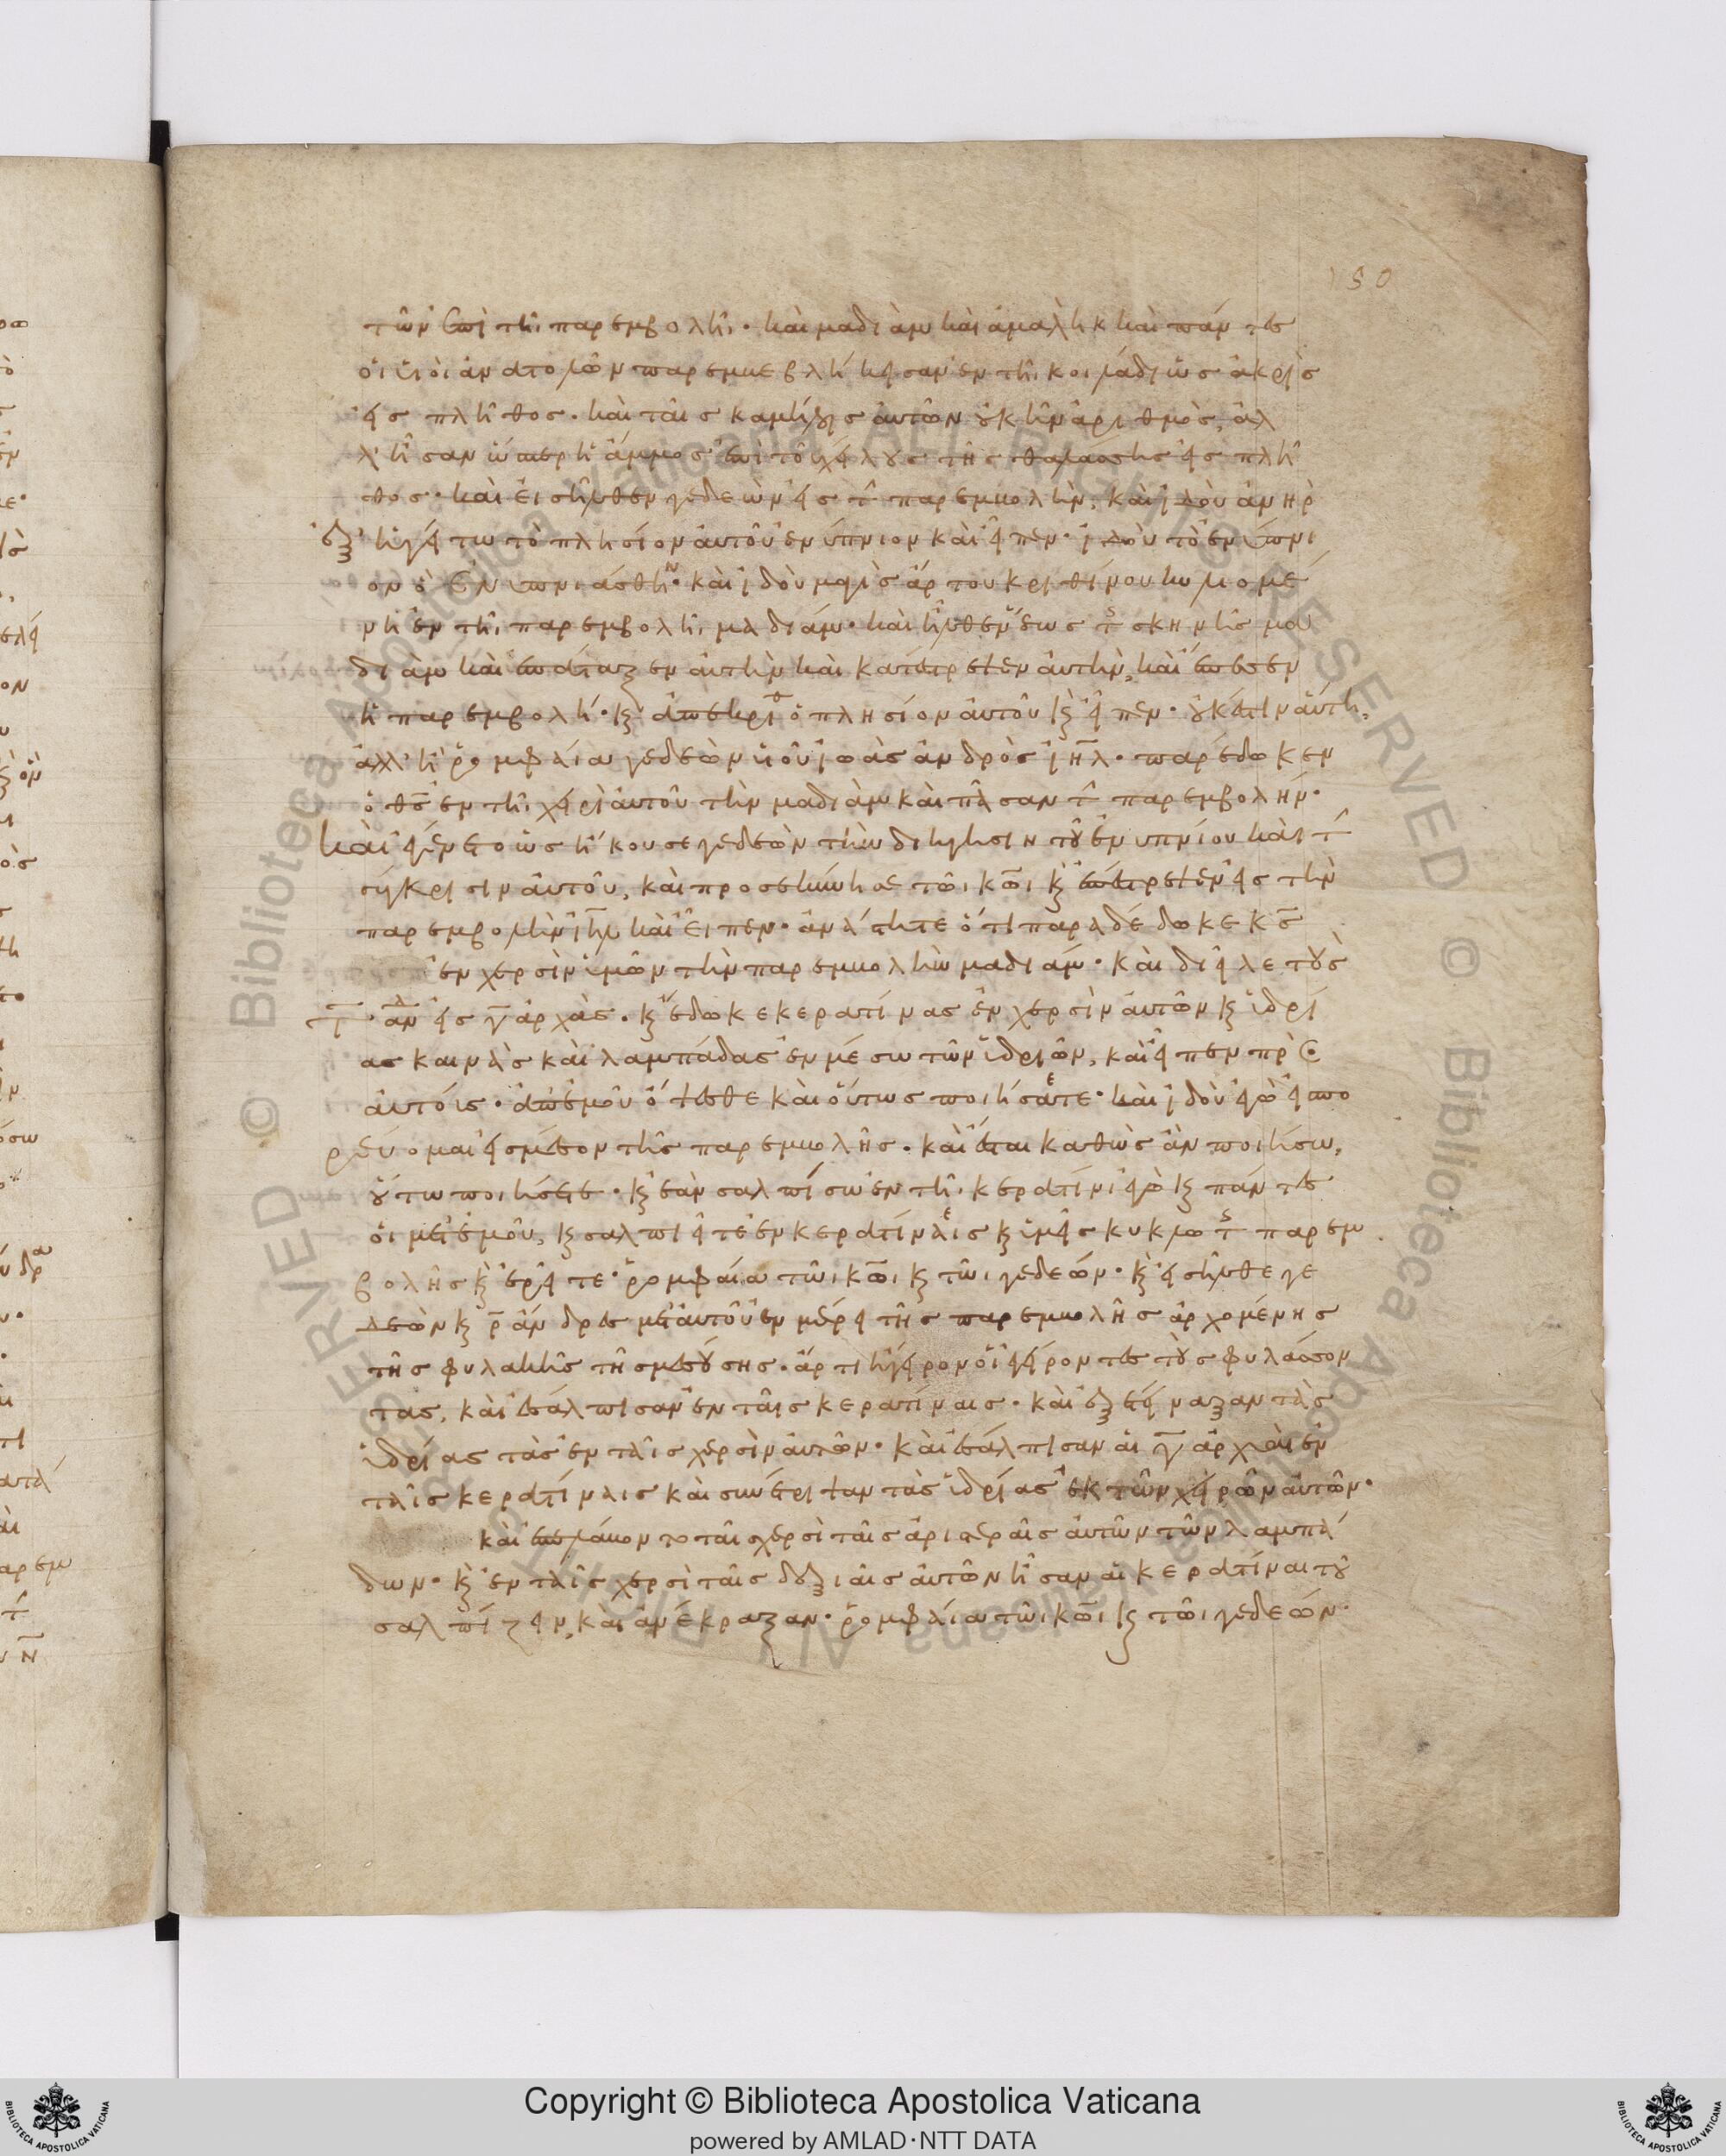 150
τῶν ἐπὶ τῆι παρεμβολῆι· καὶ μαδιὰμ καὶ ἀμαλὴκ καὶ πάντες
οἱ υἱοὶ ἀνατολῶν παρεμβεβλήκεισαν ἐν τῆι κοιλάδι ὡς ἀκρὶς
εἰς πλῆθος· καὶ ταῖς καμήλοις αὐτῶν οὐκ ἦν ἀριθμὸς, ἀλ
λ' ἦσαν ὥσπερ ἡ ἄμμος ἐπὶ τὸ χεῖλος τῆς θαλάσσης εἰς πλῆ
θος· καὶ εἰσῆλθεν γεδεὼν εἰς τ̑ παρεμβολὴν, καὶ ἰδοὺ ἀνὴρ
ἐξηγεῖτω τὸ πλησίον αὐτοῦ ἐνύπνιον καὶ εἶπεν· ἰδοὺ τὸ ἐνύπνι
ον ὃ ἐνυπνιάσθην· καὶ ἰδοὺ μαγὶς ἄρτου κριθίνου κυλιομέ
νη ἐν τῆι παρεμβολῆι μαδιάμ· καὶ ἦλθεν ἕως τ̑ς σκηνῆς μα
διὰμ καὶ ἐπάταξεν αὐτὴν καὶ κατέστρεψεν αὐτὴν, καὶ ἔπεσεν
ἡ παρεμβολή· κ̀ ἀπεκρίθ ὁ πλησίον αὐτοῦ κ̀ εἶπεν· οὐκ ἔστιν αὕτη,
ἀλλ' ἢ ῥομφαία γεδεὼν υἱοῦ ἰωὰς ἀνδρὸς ιη̅λ· παρέδωκεν
ὁ θ̅ς ἐν τῆι χειρὶ αὐτοῦ τὴν μαδιὰμ καὶ πᾶσαν τ̑ παρεμβολήν·
καὶ ἐγένετο ὡς ἤκουσε γεδεὼν τὴν διήγησιν τοῦ ἐνυπνίου καὶ τ̑
σύγκρισιν αὐτοῦ, καὶ προσεκύνησε τῶι κ̅ω̅ι κ̀ ἐπέστρεψεν εἰς τὴν
παρεμβολὴν ιη̅λ καὶ εἶπεν· ἀνάστητε ὅτι παραδέδωκε κ̅ς
ἐν χερσὶν ὑμῶν τὴν παρεμβολὴν μαδιάμ· καὶ διεῖλε τοὺς
τ̅ ἄν εἰς γ̅ ἀρχὰς· κ̀ ἔδωκε κερατίνας ἐν χερσὶν αὐτῶν κ̀ ὑδρί
ας καινὰς καὶ λαμπάδας ἐν μέσω τῶν ὑδριῶν, καὶ εἶπεν πρὸς
αὐτοὺς· ἀπ' ἐμοῦ ὄψεσθε καὶ οὕτως ποιήσατε· καὶ ἰδοὺ ἐγὼ εἰσπο
ρεύομαι εἰς μέσον τῆς παρεμβολῆς· καὶ ἔσται καθὼς ἂν ποιήσω,
οὕτω ποιήσετε· κ̀ ἐὰν σαλπίσω ἐν τῆι κερατίνι ἐγὼ κ̀ πάντες
οἱ μετ' ἐμοῦ, κ̀ σαλπιεῖτε ἐν κερατίναις κ̀ ὑμεῖς κύκλω τ̑ς παρεμ
βολῆς κ̀ ἐρεῖτε· ῥομφαία τῶι κ̅ω̅ι κ̀ τῶι γεδεών· κ̀ εἰσῆλθε γε
δεὼν κ̀ ρ̅ ἄνδρες μετ' αὐτοῦ ἐν μέρει τῆς παρεμβολῆς ἀρχομένης
τῆς φυλακῆς τῆς μεσούσης· ἄρτι ἤγειρον οἱ ἐγείροντες τοὺς φυλάσσον
τας, καὶ ἐσάλπισαν ἐν ταῖς κερατίναις· καὶ ἐξετείναξαν τὰς
ὑδρίας τὰς ἐν ταῖς χερσὶν αὐτῶν· καὶ ἐσάλπισαν αἱ γ̅ ἀρχαὶ ἐν
ταῖς κερατίναις καὶ συνέτριψαν τὰς ὑδρίας ἐκ τῶν χειρῶν αὐτῶν·
καὶ ἐπελάβοντο ταῖς χερσὶ ταῖς ἀριστεραῖς αὐτῶν τῶν λαμπά
δων· κ̀ ἐν ταῖς χερσὶ ταῖς δεξιαῖς αὐτῶν ἦσαν αἱ κερατίναι τοῦ
σαλπίζειν, καὶ ἀνέκραξαν· ῥομφαία τῶι κ̅ω̅ι κ̀ τῶι γεδεών·
Copyright © Biblioteca Apostolica Vaticana
powered by AMLAD·NTT DATA